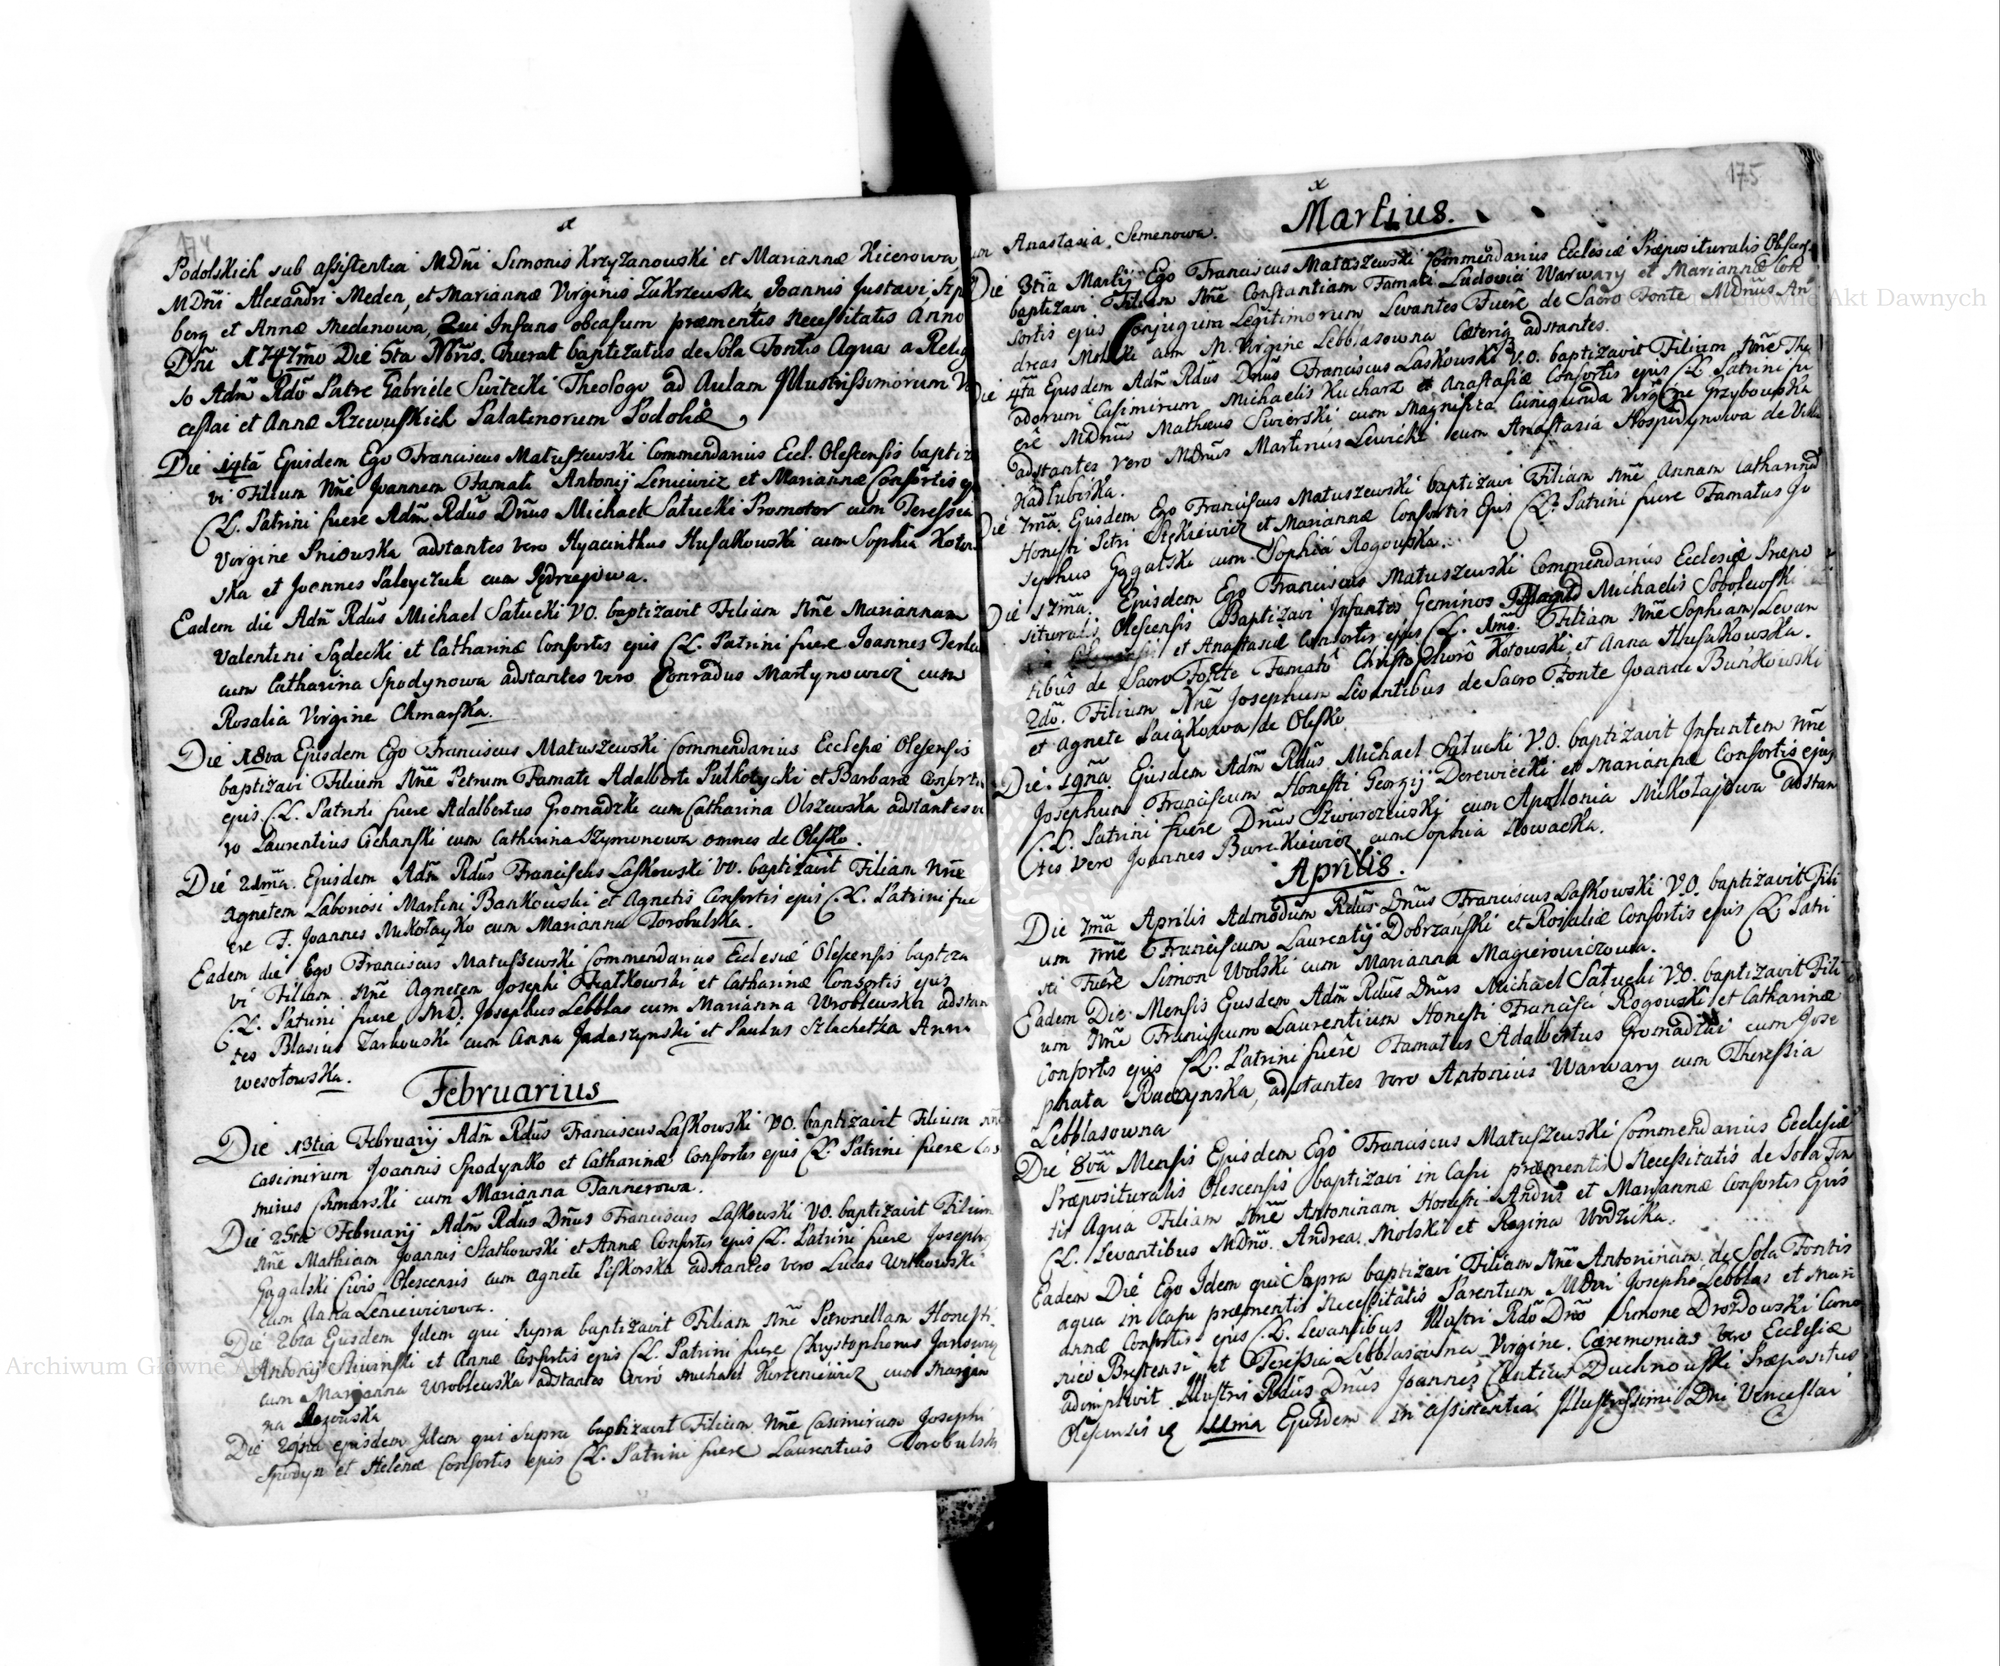 174
Podolskich sub assistentia MDni Simonis Krzyżanowski et Mariannæ Kicerowa
MDni Alexandri Meden, et Mariannæ Virginis Zakrzewska, Joannis Justavi
berg et Annæ Medenowa, Qui Infans ob casum præmentis Necessitatis Anno
Dni 1747mo Die 5ta Nbris. fuerat baptizatus de Sola Fontis Aqua a
so Adm Rdo Patre Gabriele Switecki Theologo ad Aulam Illustrissimorum
ceslai et Annæ Rzewuskich Palatinorum Podoliæ,
Die 14ta Ejusdem Ego Franciscus Matuszewski Commendarius Eccl. Olescensis baptiza
vi Filium Nne Joannem Famati Antonij Leniewicz et Mariannæ Consortis
CL. Patrini fuere Adm. Rdus Dnus Michael Satucki Promotor cum Teressia
Virgine Pniowska adstantes vero Hyacinthus Husakowski cum Sophia
ska et Joannes Paleyczuk cum Jędrzejowa.
Eadem die Adm Rdus Michael Satucki VO. baptizavit Filiam Nne Mariannam
Valentini Sądecki et Catharinæ Consortis ejus CL. Patrini fuere Joannes
cum Catharina Spodynowa adstantes vero Conradus Martynowicz cum
Rosalia Virgine Chmarska.
Die 18va Ejusdem Ego Franciscus Matuszewski Commendarius Ecclesiæ Olesensis
baptizavi Filium Nne Petrum Famati Adalberti Pulkotycki et Barbaræ Consortis
ejus CL. Patrini fuere Adalbertus Gromadzki cum Catharina Olszewska adstantes ve
ro Laurentius Cichanski cum Catharina Szymonowa omnes de Olesko.
Die 21ma. Ejusdem Adm Rdus Franciscus Laskowski VO. baptizavit Filiam Nne
Agnetem Laboriosi Martini Bankowski et Agnetis Consortis ejus CL. Patrini fue
ere F. Joannes Mikołayko cum Marianna Dorobulska.
Eadem die Ego Franciscus Matuszewski Commendarius Ecclesiæ Olescensis baptiza
vi Filiam Nne Agnetem Josephi Fiałkowski et Catharinæ Consortis ejus
CL. Patrini fuere MD. Josephus Lebblas cum Marianna Wroblewska adstan
tes Blasius Zarkowski cum Anna Jadaszynski et Paulus Szlachetka Anna
Wesołowska.
Februarius
Die 13tia Februarij Adm Rdus Franciscus Laskowski VO. baptizavit Filium Nne
Casimirum Joannis Spodynko et Catharinæ Consortis ejus CL. Patrini fuere
minus Chmarski cum Marianna Tannerowa.
Die 25ta Februarij Adm Rdus Dnus Franciscus Laskowski VO. baptizavit Filium
Nne Mathiam Joannis Szatkowski et Annæ Consortis ejus CL. Patrini fuere Josephus
Gągalski Civis Olescensis cum Agnete Piskorska adstantes vero Lucas Witkowski
cum Anna Leniewiczowa.
Die 26ta Ejusdem Idem qui supra baptizavit Filiam Nne Petronellam Honesti
Antonij Sliwinski et Annæ Consortis ejus CL. Patrini fuere Chrystophorus
cum Marjanna Wroblewska adstantes vero Michael Kurzeniewicz cum Marjan
na Rogowska
Die 29na ejusdem Idem qui supra baptizavit Filium Nne Casimirum Josephi
Spodyn et Helenæ Consortis ejus CL. Patrini fuere Laurentius Dorobulski
175
Anastasia Semenowa.
Martius.
Die 3tia Martij Ego Franciscus Matuszewski Commendarius Ecclesiæ Præposituralis
baptizavi Filiam Nne Constantiam Famati Ludovici Warwary et Mariannæ Con
sortis ejus Conjugum Legitimorum Levantes Fuere de Sacro Fonte MDnus An
dreas Molski cum M. Virgine Lebblasowna Cæteriq adstantes.
Die 4ta Ejusdem Adm Rdus Dnus Franciscus Laskowski V.O. baptizavit Filium Nne The
odorum Casimirum Michaelis Kucharz et Anastasiæ Consortis ejus CL. Patrini fu
ere MDnus Matheus Swierski cum Magnifica Cunegunda Virgine Grzybowska
adstantes vero MDnus Martinus Lewicki cum Anastasia Hospodynowa de Villa
Kadlubiska.
Die 7ma Ejusdem Ego Franciscus Matuszewski baptizavi Filiam Nne Annam Catharinam
Honesti Petri Stękiewicz et Mariannæ Consortis Ejus CL. Patrini fuere Famatus Jo
sephus Gągalski cum Sophia Rogowska.
Die 17ma. Ejusdem Ego Franciscus Matuszewski Commendarius Ecclesiæ Præpo
situralis Olescensis Baptizavi Infantes Geminos Michaelis Sobolewski
et Anastasiæ Consortis ejus CL. 1mo. Filiam Nne Sophiam Levan
tibus de Sacro Fonte Famato Christophoro Kotowski et Anna Husakowska.
2do. Filium Nne Josephum Levantibus de Sacro Fonte Joanne Buńkowski
et Agnete Paiąkowa de Olesko
Die 19na. Ejusdem Adm Rdus Michael Satucki V.O. baptizavit Infantem Nne
Josephum Franciscum Honesti Georgij Derewiecki et Mariannæ Consortis ejus
CL. Patrini fuere Dnus Szwarczewski cum Apollonia Mikołajowa adstan
tes vero Joannes Burakiewicz cum Sophia Nowacka.
Aprilis.
Die 7ma Aprilis Admodum Rdus Dnus Franciscus Laskowski V.O. baptizavit Fili
um Nne Franciscum Laurentij Dobrzański et Rosaliæ Consortis ejus CL. Patri
ni Fuere Simon Wolski cum Marianna Magierowiczowa.
Eadem Die Mensis Ejusdem Adm Rdus Dnus Michael Satucki V.O. baptizavit Fili
um Nne Franciscum Laurentium Honesti Francisci Rogowski et Catharinæ
Consortis ejus CL. Patrini fuere Famatus Adalbertus Gromadzki cum Jose
phata Raczynska, adstantes vero Antonius Warwary cum Theressia
Lebblasowna
Die 8va Mensis Ejusdem Ego Franciscus Matuszewski Commendarius Ecclesiæ
Præposituralis Olescensis baptizavi in Casu præmentis Necessitatis de Sola Fon
tis Aqua Filiam Nne Antoninam Honesti Andreæ et Mariannæ Consortis Ejus
CL. Levantibus MDno. Andrea Molski et Regina Wodzicka.
Eadem Die Ego Idem qui Supra baptizavi Filiam Nne Antoninam de Sola Fontis
aqua in Casu præmentis Necessitatis Parentum MDni Josephi Lebblas et Mari
annæ Consortis ejus CL. Levantibus Illustri Rdo Dno Simone Drozdowski Cano
nico Brestensi et Teressia Lebblasowna Virgine. Cæremonias vero Ecclesiæ
adimplevit Illustris Rdus Dnus Joannes Cantius Duchnowski Præpositus
Olescensis 11ma Ejusdem in assistentia Illustrissimi Dni Venceslai